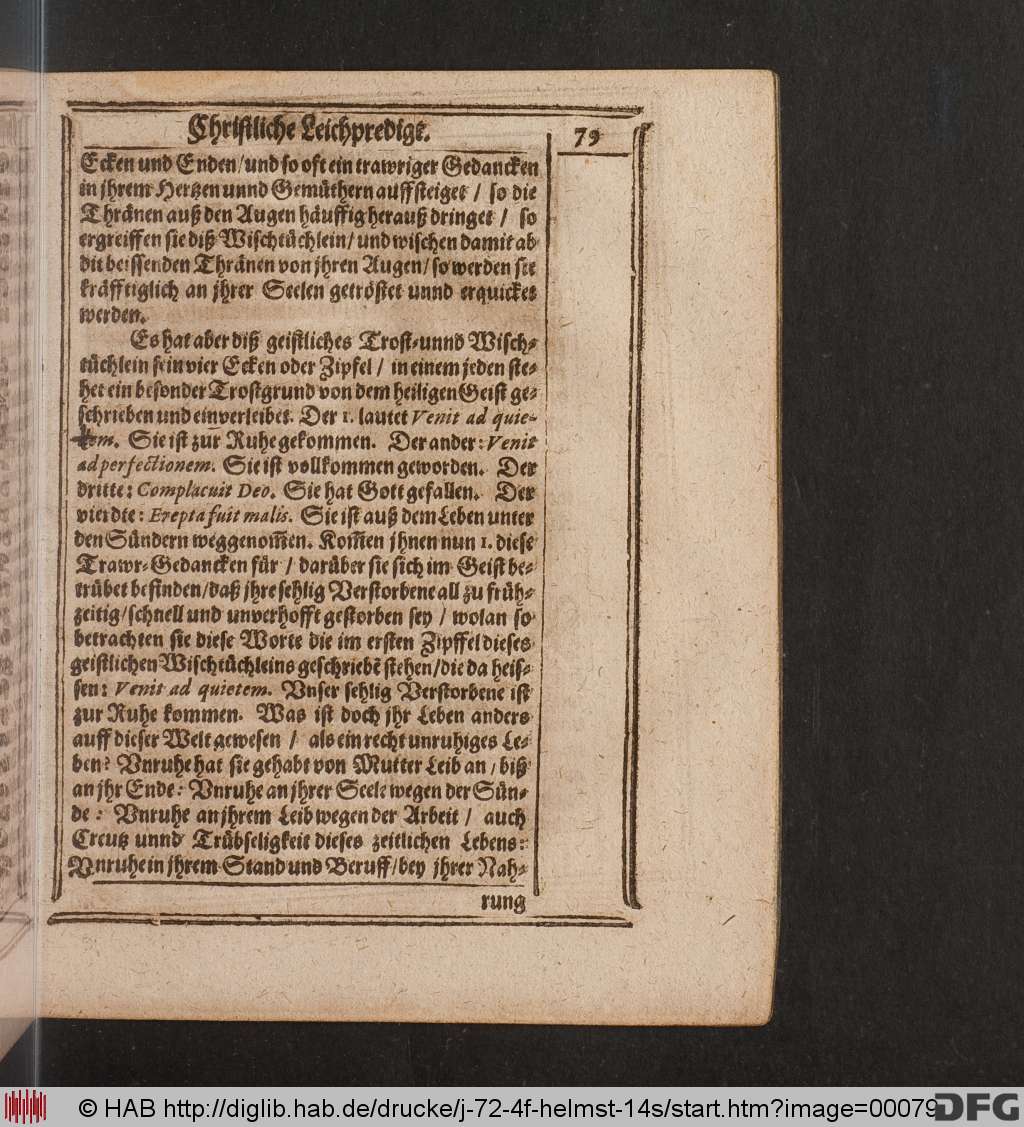 Christliche Leichpredigt.
79
Ecken und Enden/und so oft ein trawriger Gedancken
in jhrem Hertzen unnd Gemüthern auffsteiget / so die
Thränen auß den Augen häuffig herauß dringet / so
ergreiffen sie diß Wischtüchlein/und wischen damit ab
die beissenden Thränen von jhren Augen/so werden sie
kräfftiglich an jhrer Seelen getröstet unnd erquicket
werden.
Es hat aber diß geistliches Trost-unnd Wisch-
tüchlein sein vier Ecken oder Zipfel / in einem jeden ste-
het ein besonder Trostgrund von dem heiligen Geist ge-
schrieben und einverleibet. Der 1. lautet Venit ad quie-
tem. Sie ist zur Ruhe gekommen. Der ander: Venit
ad perfectionem. Sie ist vollkommen geworden. Der
dritte: Complacuit Deo. Sie hat Gott gefallen. Der
vierdte: Erepta fuit malis. Sie ist auß dem Leben unter
den Sündern weggenom̃en. Kom̃en jhnen nun 1. diese
Trawr-Gedancken für / darüber sie sich im Geist be-
trübet befinden/daß jhre sehlig Verstorbene all zu früh-
zeitig/schnell und unverhofft gestorben sey / wolan so
betrachten sie diese Worte die im ersten Zipffel dieses
geistlichen Wischtüchleins geschriebẽ stehen/die da heis-
sen: Venit ad quietem. Vnser sehlig Verstorbene ist
zur Ruhe kommen. Was ist doch jhr Leben anders
auff dieser Welt gewesen / als ein recht unruhiges Le-
ben? Vnruhe hat sie gehabt von Mutter Leib an/biß
an jhr Ende: Vnruhe an jhrer Seele wegen der Sün-
de: Vnruhe an jhrem Leib wegen der Arbeit / auch
Creutz unnd Trübseligkeit dieses zeitlichen Lebens:
Vnruhe in jhrem Stand und Beruff/bey jhrer Nah-
rung
© HAB http://diglib.hab.de/drucke/j-72-4f-helmst-14s/start.htm?image=00079
DFG